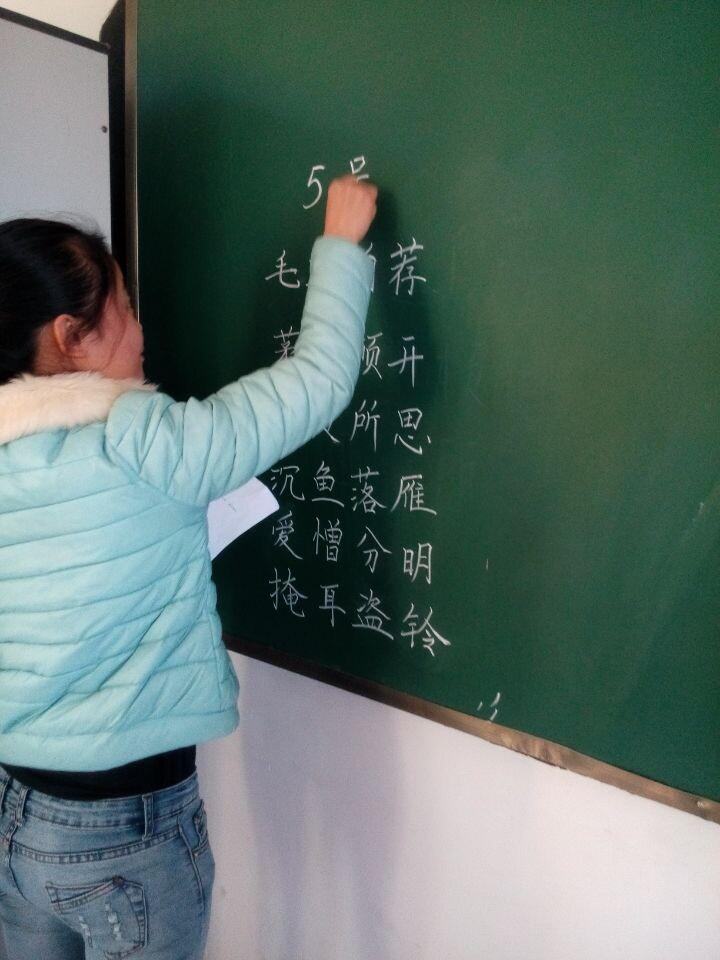 5号
毛 荐
茅 顿开
所思
沉鱼落雁
爱憎分明
掩耳盗铃